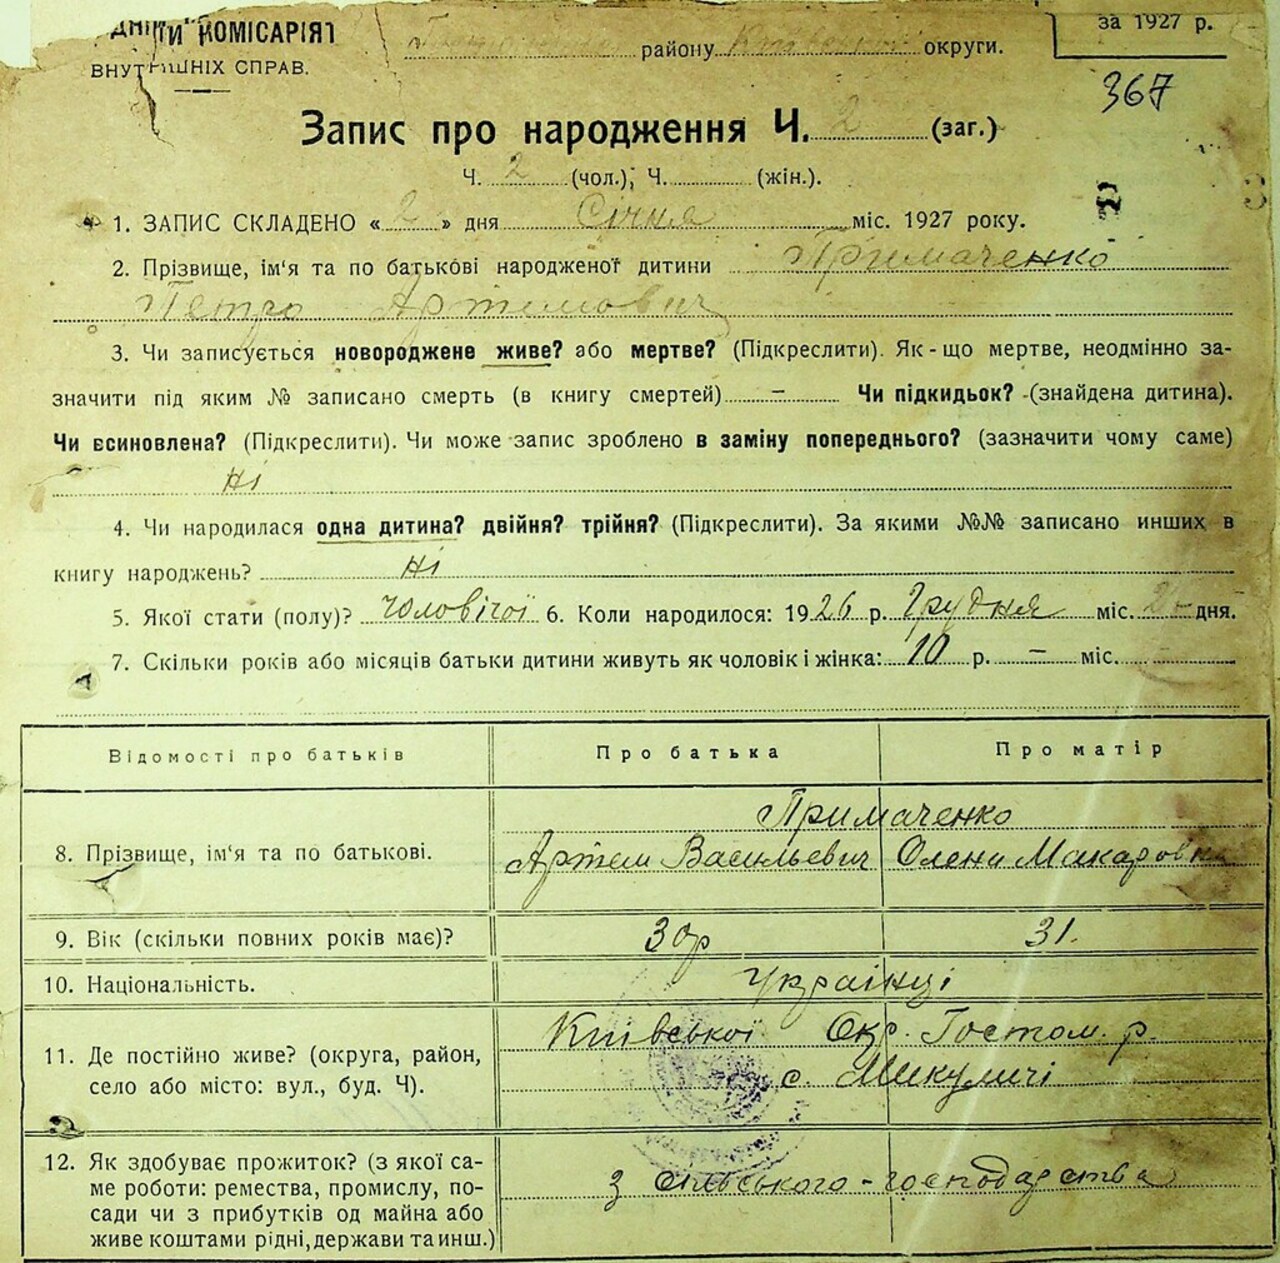 КОМІСАРІЯТ
ВНУТРІШНІХ СПРАВ.
району Київської округи.
за 1927 р.
367
Запис про народження Ч. 2 (заг.)
Ч. 2 (чол.), Ч. (жін.).
1. ЗАПИС СКЛАДЕНО « 2 » дня Січня міс. 1927 року.
2. Прізвище, ім'я та по батькові народженої дитини Примаченко
Петро Артемович
3. Чи записується новороджене живе? або мертве? (Підкреслити). Як-що мертве, неодмінно за-
значити під яким № записано смерть (в книгу смертей) – Чи підкидьок? (знайдена дитина).
Чи всиновлена? (Підкреслити). Чи може запис зроблено в заміну попереднього? (зазначити чому саме)
Ні
4. Чи народилася одна дитина? двійня? трійня? (Підкреслити). За якими №№ записано инших в
книгу народжень? Ні
5. Якої стати (полу)? чоловічої 6. Коли народилося: 1926 р. Грудня міс. дня.
7. Скільки років або місяців батьки дитини живуть як чоловік і жінка: 10 р. – міс.
Відомості про батьків Про батька Про матір
Примаченко
8. Прізвище, ім'я та по батькові. Артем Васильевич Олена Макаровна
9. Вік (скільки повних років має)? 30р 31.
10. Національність. Українці
Київської Окр. Гостом. р.
11. Де постійно живе? (округа, район,
село або місто: вул., буд. Ч). с. Микуличі
12. Як здобуває прожиток? (з якої са-
ме роботи: ремества, промислу, по- з сільського-господарства
сади чи з прибутків од майна або
живе коштами рідні, держави та инш.)